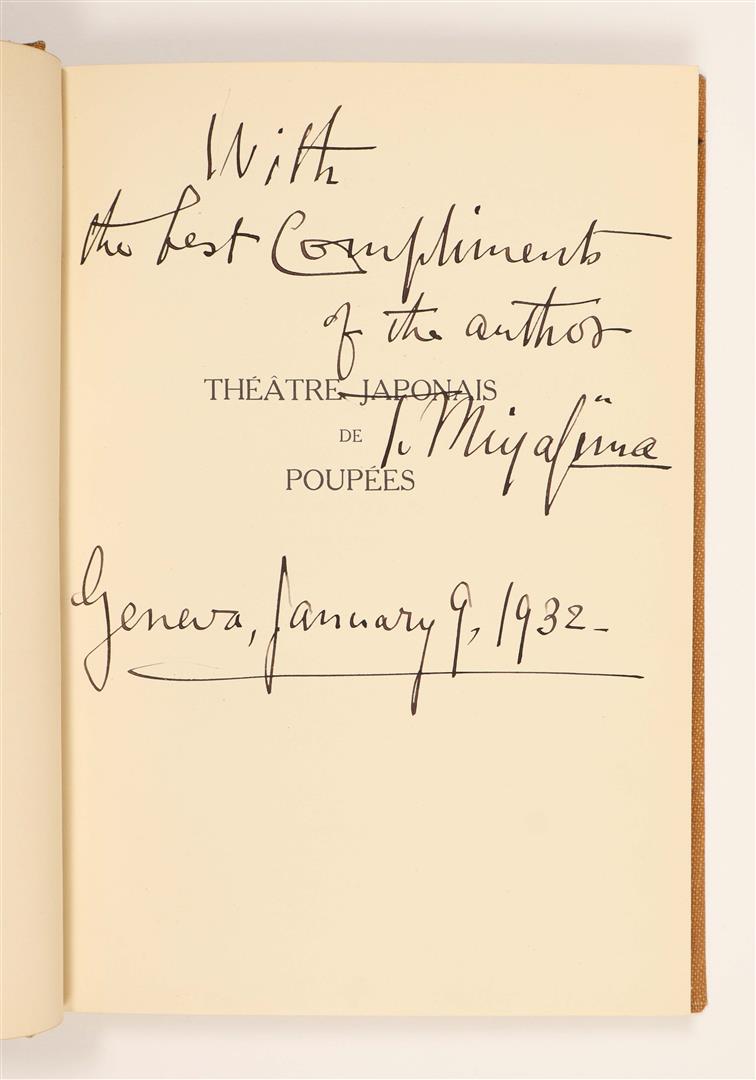 With
the best Compliments
of the author
THÉÂTRE JAPONAIS
DE
T. Miyajima
POUPÉES
Geneva, January 9, 1932-